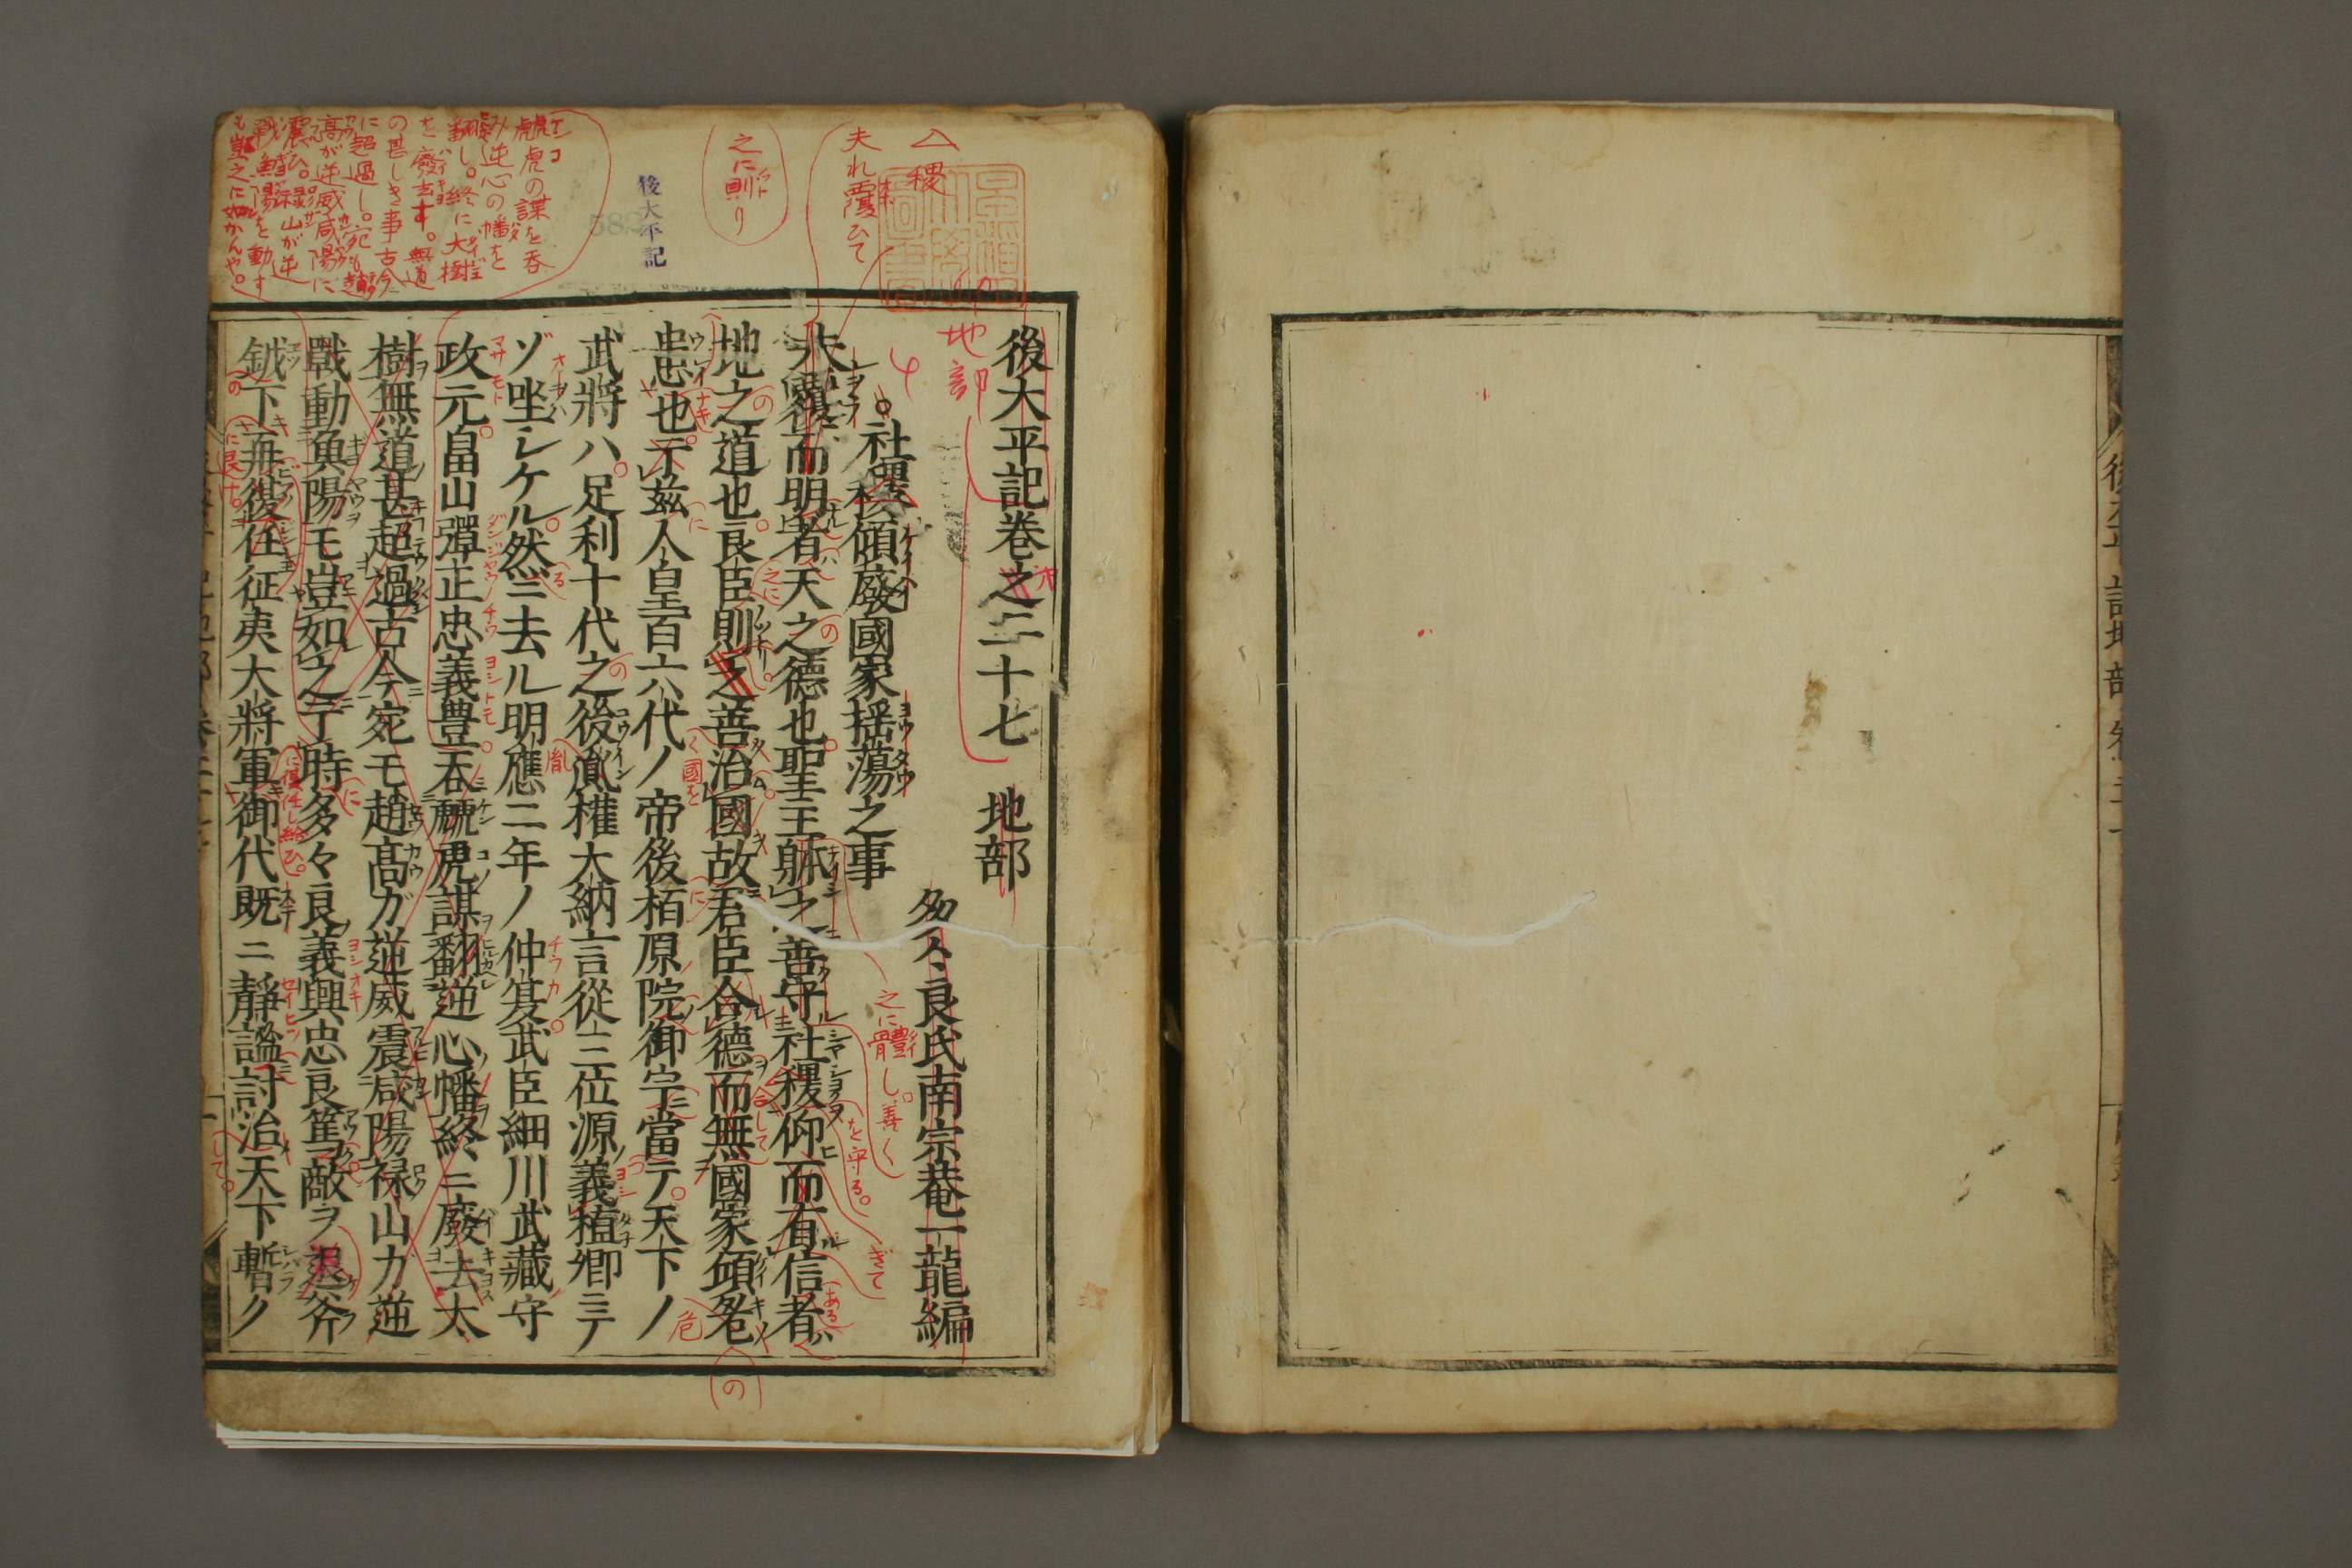 後大平記巻之二十七　地部
多々良氏南宗菴一龍編
社稷傾廢國家揺蕩之事
夫覆而明者天之德也聖主躰之善守社稷仰而有信者
地之道也良臣則之善治國故君臣合德而無國家傾危
患也于茲人皇百六代ノ帝後栢原院御宇當テ天下ノ
武將ハ足利十代之後胤權大納言從三位源義植卿ニテ
ゾ坐シケル然ニ去ル明應二年ノ仲夏武臣細川武藏守
政元畠山彈正忠義豊吞虓虎謀翻逆心幡終ニ廢去大
樹無道甚超過古今宛モ趙髙ガ逆威震咸陽禄山カ逆
戰動漁陽モ豈如之于時多々良義興忠良篤敵ヲ退斧
鉞下再復任征夷大將軍御代既ニ靜謐討治天下暫ク
地部
△稷
夫れ覆ひて
之に則り
後太平記
虓虎の謀を吞
み逆心の幡を
翻し。終に大樹
を廢去す。無道
の甚しき事古今
に超過し。宛も趙
高が逆威咸陽に
震ひ。禄山が逆
戰漁陽を動す
も豈之に如かんや。
之に體し善く
を守る。
ぎて
ある
の
危
胤